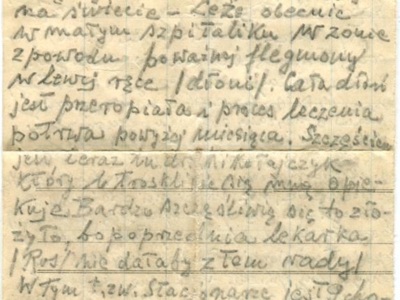 na świecie – Leżę obecnie
w małym szpitaliku w zonie
z powodu poważnej flegmony
w lewej ręce /dłoni/. Cała dłoń
jest przeropiała i proces leczenia
potrwa powyżej miesiąca. Szczęściem
jest teraz tu dr. Mikołajczyk
który b. troskliwie się mną opie-
kuje. Bardzo szczęśliwie się to zło-
żyło, bo poprzednia lekarka
/Ros/ nie dałaby z tem rady/
W tym t. zw. Stacjonarze jest